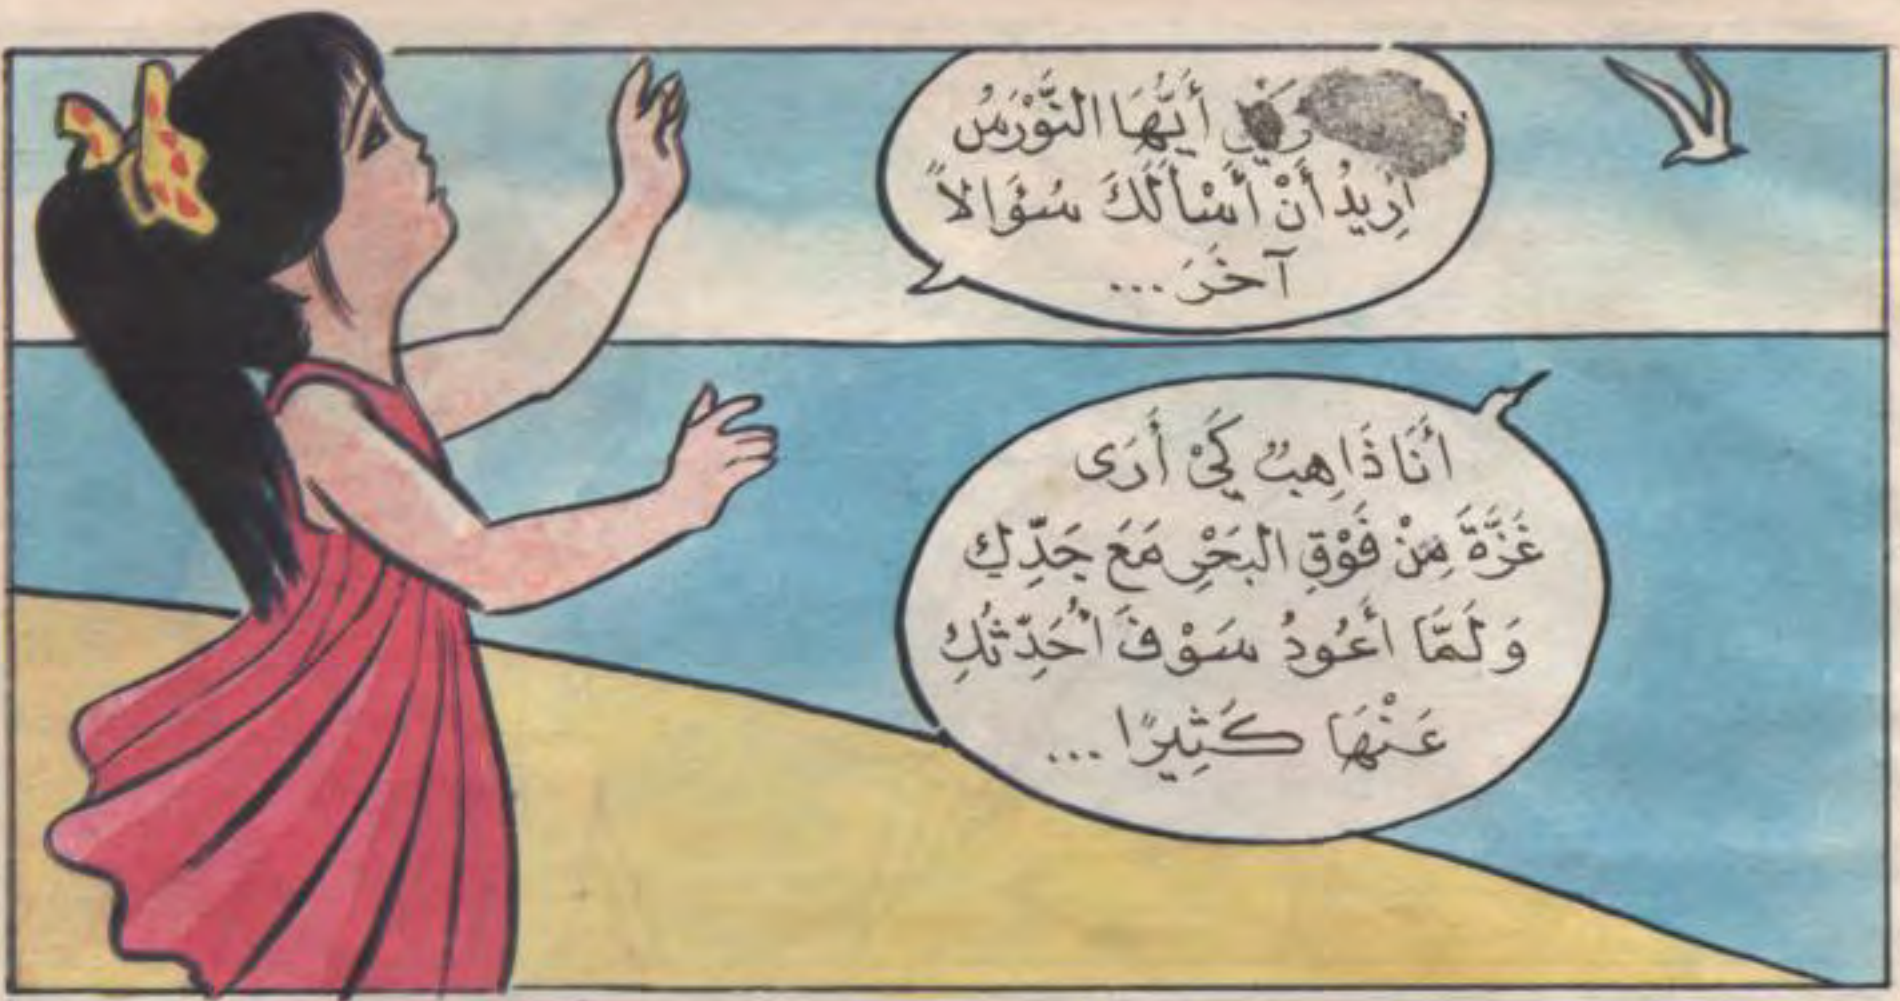 أَيُّهَا النَّوْرَسُ
أُرِيدُ أَنْ أَسْأَلَكَ سُؤَالاً
آخَرَ...
أَنَا ذَاهِبٌ كَيْ أَرَى
غَزَّةَ مِنْ فَوْقِ البَحْرِ مَعَ جَدِّكِ
وَلَمَّا أَعُودُ سَوْفَ أُحَدِّثُكِ
عَنْهَا كَثِيرًا...